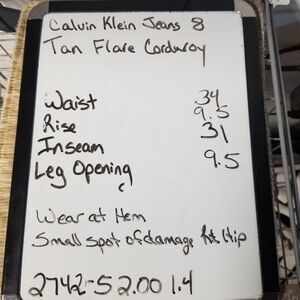 Calvin Klein Jeans 8
Tan Flare Corduroy
Waist 34
Rise 9.5
Inseam 31
Leg Opening 9.5
Wear at Hem
Small spot of damage Rt Hip
2742-5 2.00 1.4